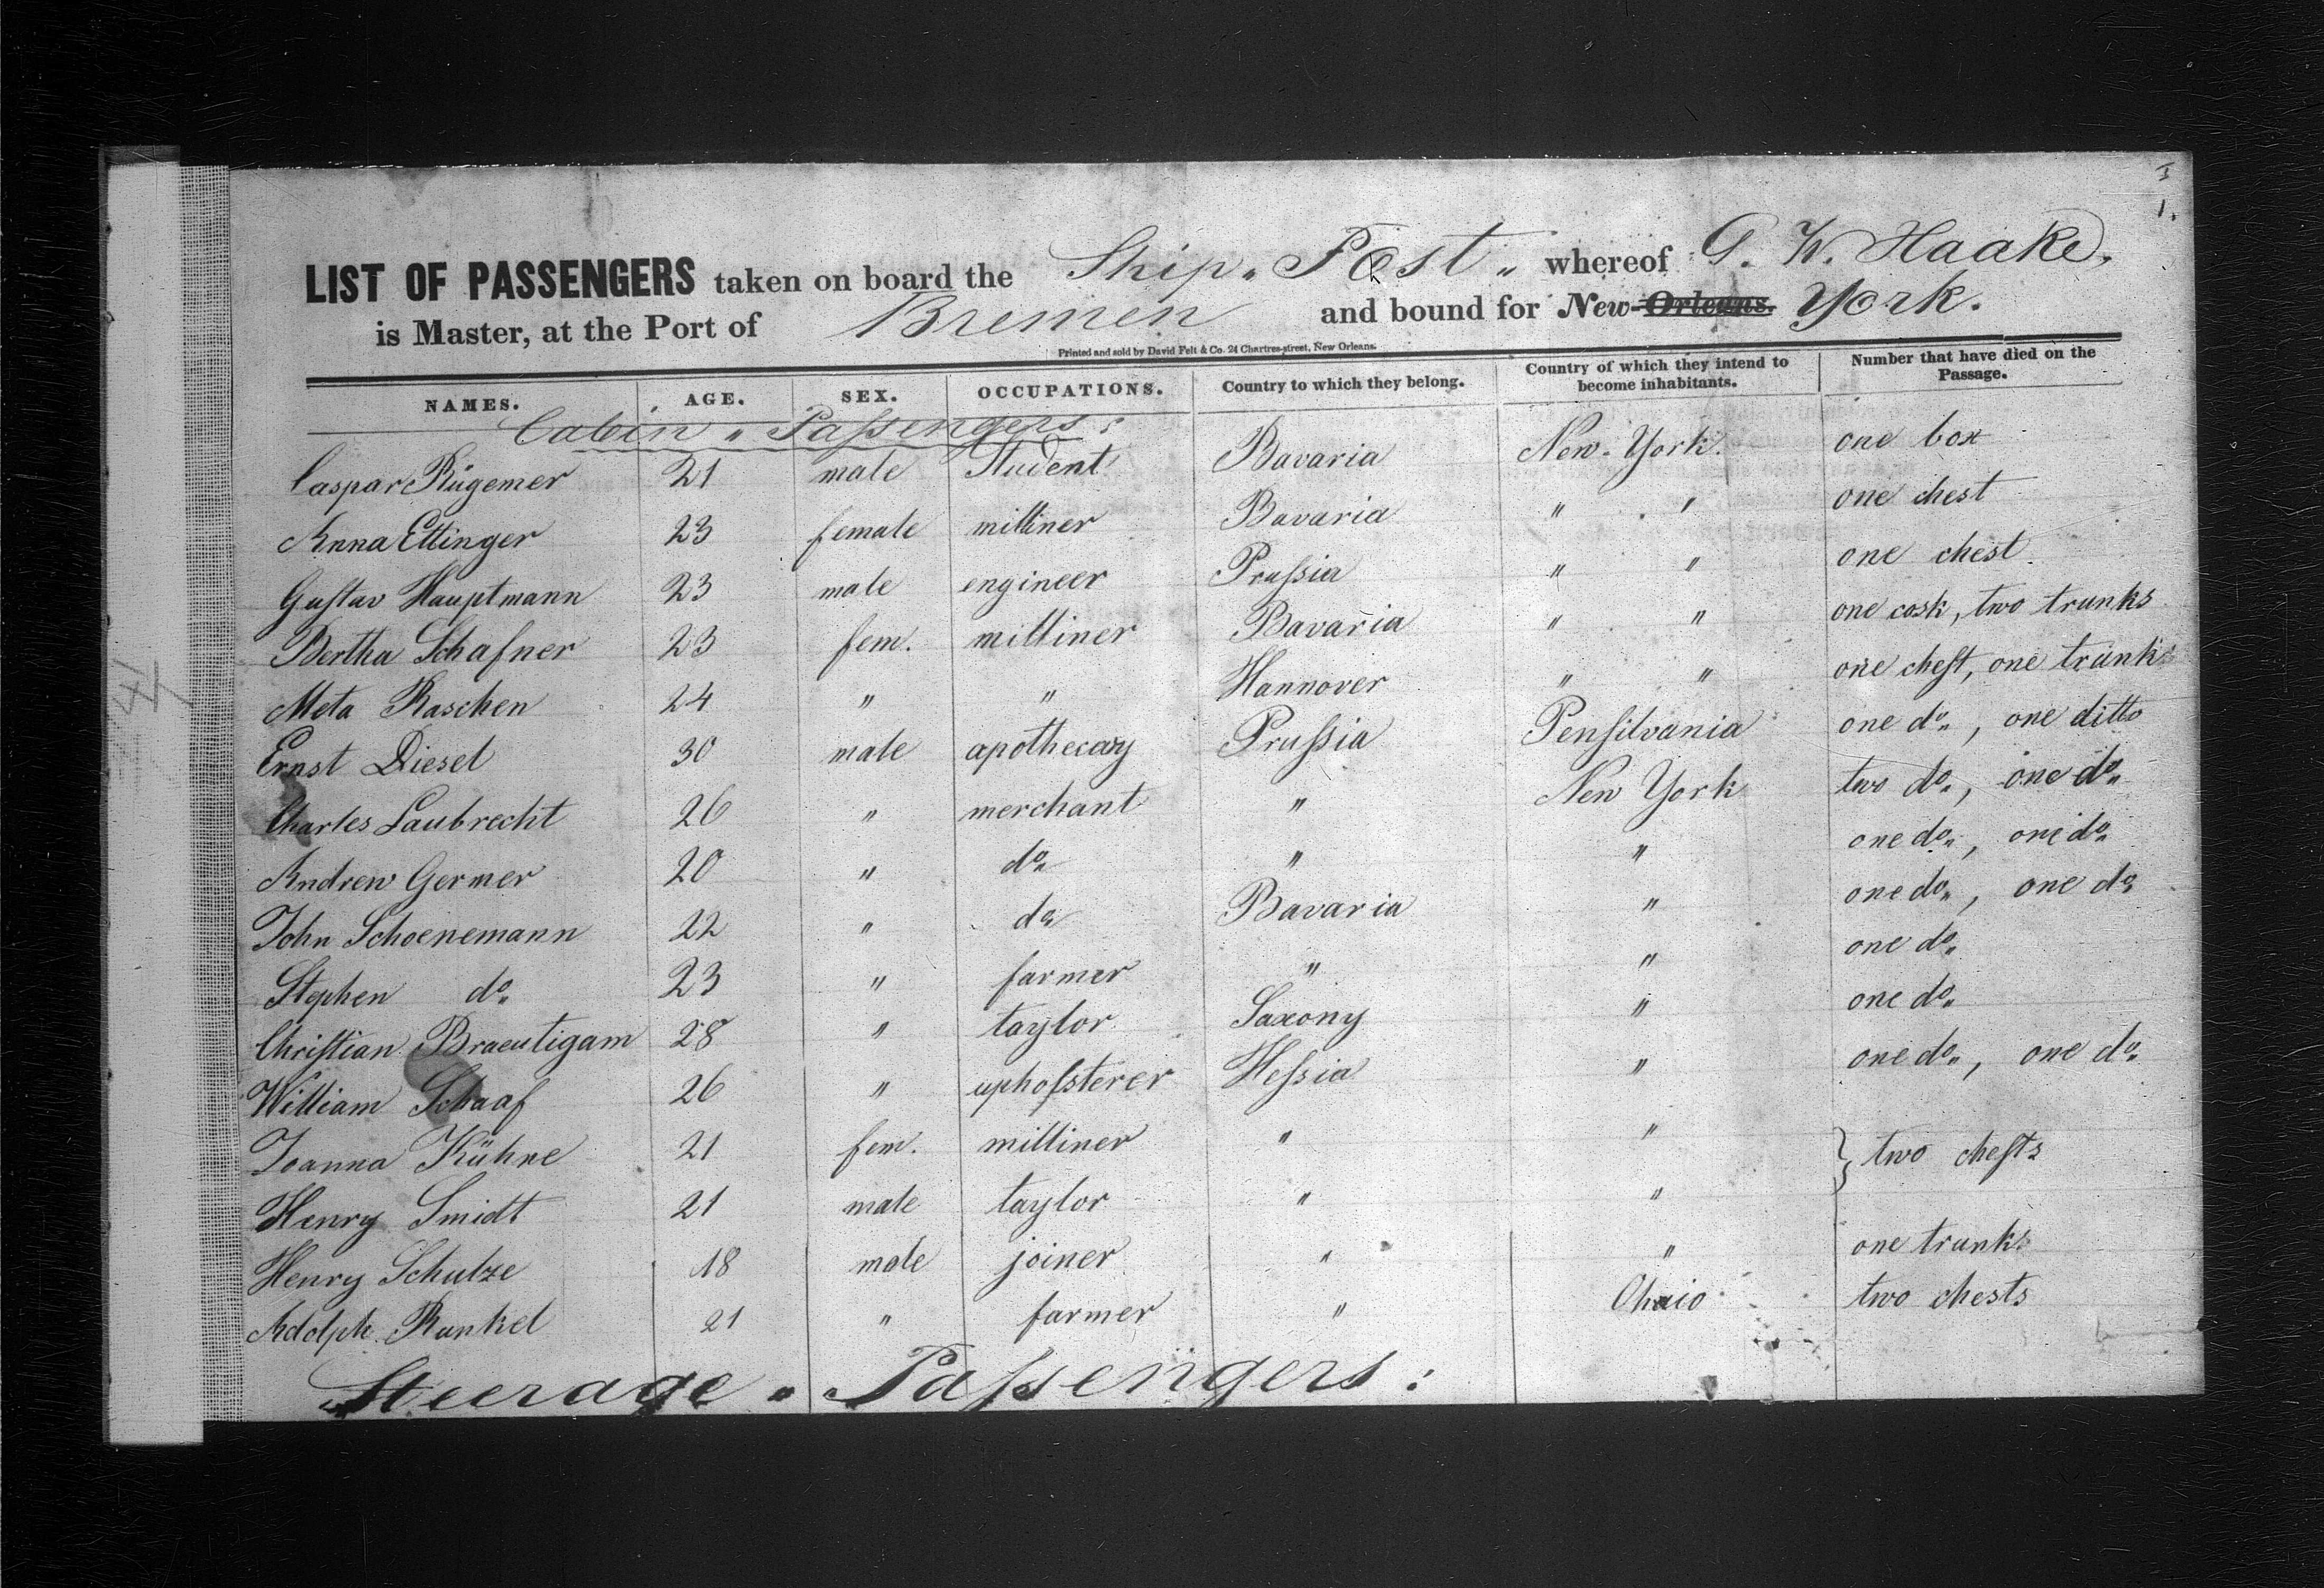 I
1.
LIST OF PASSENGERS taken on board the Ship „ Post „ whereof G. W. Haake,
is Master, at the Port of Bremen and bound for New-Orleans. York.
Printed and sold by David Felt & Co. 24 Chartres-street, New Orleans.
NAMES. AGE. SEX. OCCUPATIONS. Country to which they belong. Country of which they intend to become inhabitants. Number that have died on the Passage.
Cabin „ Passengers:
Caspar Rügemer 21 male Student Bavaria New-York. one box
Anna Ettinger 23 female milliner Bavaria " " one chest
Gustav Hauptmann 23 male engineer Prussia " " one chest.
Bertha Schafner 23 fem. milliner Bavaria " " one cask, two trunks
Meta Raschen 24 " " Hannover " " one chest, one trunk
Ernst Diesel 30 male apothecary Prussia Pensilvania one do., one ditto
Charles Laubrecht 26 " merchant " New York two do., one do.
Andrew Germer 20 " do. " " one do., one do.
John Schoenemann 22 " do. Bavaria " one do., one do.
Stephen do. 23 " farmer " " one do.
Christian Braeutigam 28 " taylor Saxony " one do.
William Schaaf 26 " upholsterer Hessia " one do., one do.
Joanna Kühne 21 fem. milliner " " } two chests
Henry Smidt 21 male taylor " "
Henry Schulze 18 male joiner " " one trunk
Adolph Runkel 21 " farmer " Ohaio two chests
Steerage „ Passengers: